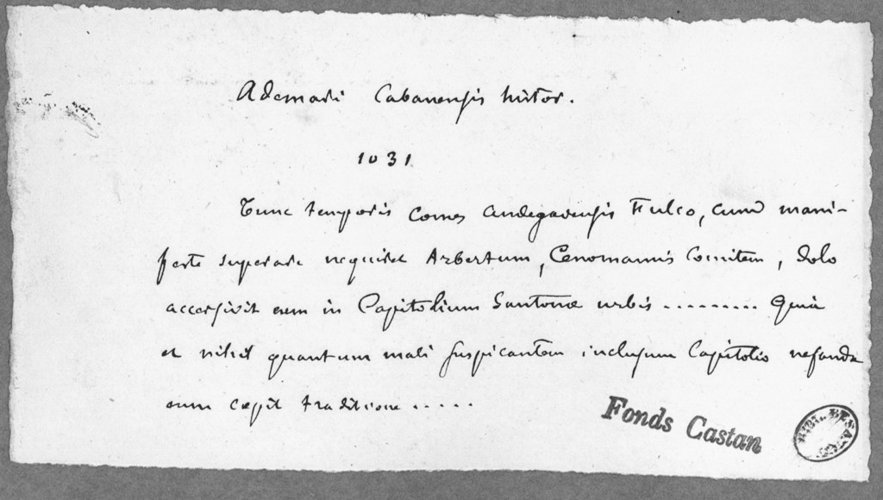 Ademari Cabanensis histor.
1031
Tunc temporis Comes Andegavensis Fulco, cum mani-
feste superare nequiret Arbertum, Cenomannis Comitem, dolo
accersivit eum in Capitolium Santonæ urbis ......... Quia
et nihil quantum mali suspicantem inclusum Capitolio nefanda
eum cepit traditione .....
Fonds Castan